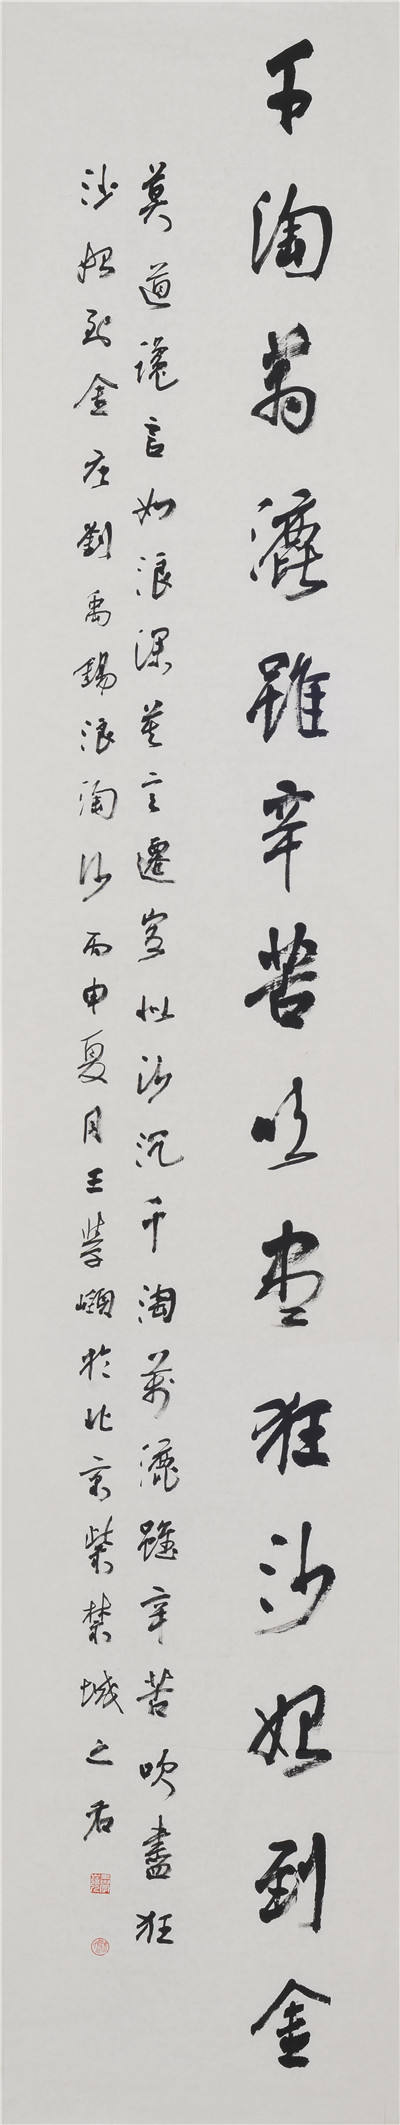 千淘萬漉雖辛苦吹盡狂沙始到金
莫道讒言如浪深莫言遷客似沙沉千淘萬漉雖辛苦吹盡狂
沙始到金唐劉禹錫浪淘沙丙申夏月王學嶺於北京紫禁城之右